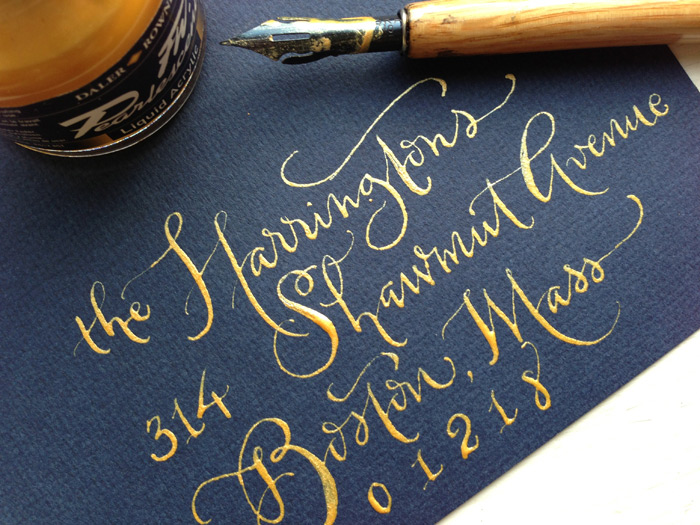 DALER ROWNEY
Pearlescent
Liquid Acrylic
the Harringtons
314 Shawmut Avenue
Boston, Mass
01218